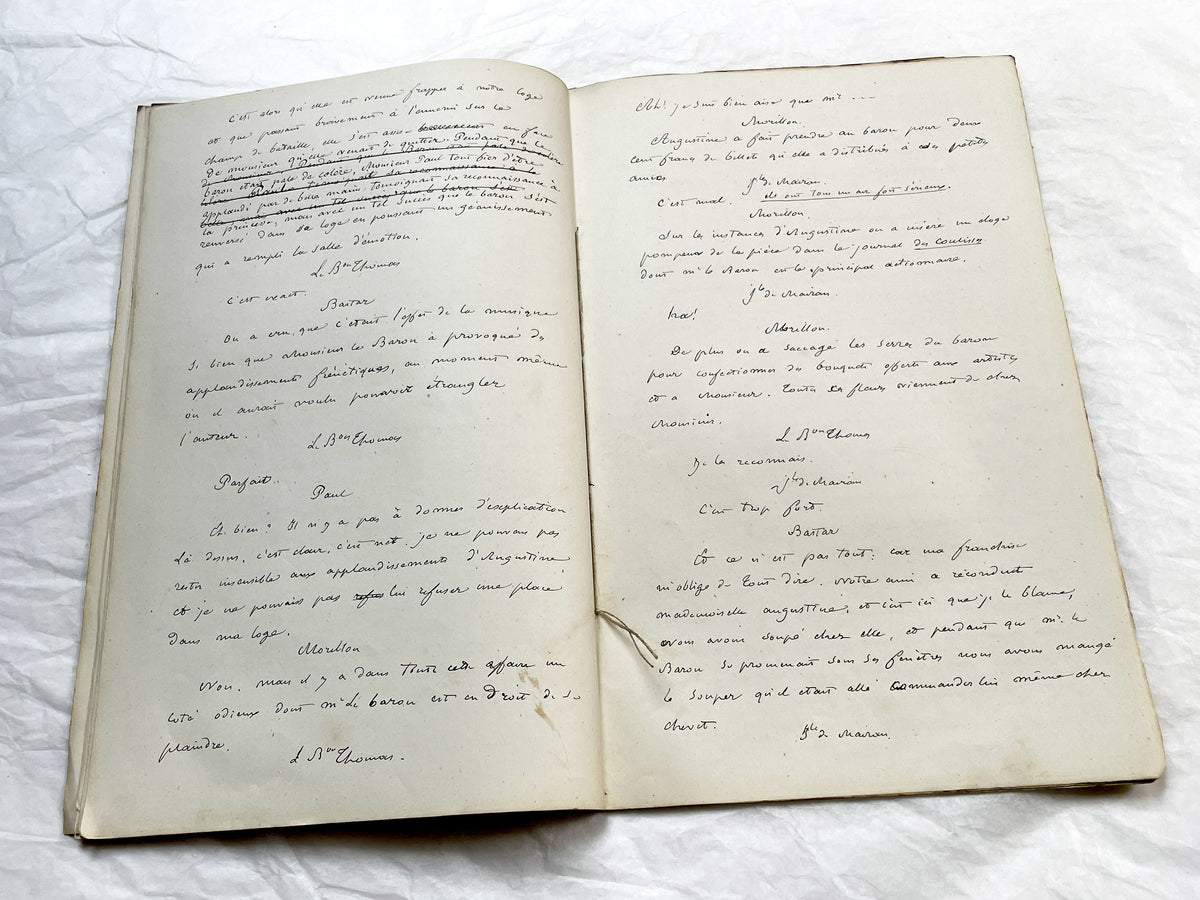 C'est alors qu'elle est venue frapper à notre loge
et que passant bravement à l'ennemi sur le
champ de bataille, elle s'est assise en face
De monsieur qu'elle venait de quitter. Pendant que le
baron etait pale de colère, Monsieur Paul tout fier d'être
applaudi par de belles mains, temoignait sa reconnaissance à
la princesse, mais avec un tel succès que le baron s'est
renversé dans sa loge en poussant un gémissement
qui a rempli la salle d'émotion.
Le Bon Thomas
C'est exact.
Bastar
On a cru que c'était l'effet de la musique
Si bien que Monsieur le Baron à provoqué des
applaudissements frénétiques, au moment même
où il aurait voulu pouvoir étrangler
l'auteur.
Le Bon Thomas
Parfait.
Paul
Eh bien ? Il n'y a pas à donner d'explication
Là dessus, c'est clair, c'est net. je ne pouvais pas
rester insensible aux applaudissements d'Augustine
et je ne pouvais pas lui refuser une place
dans ma loge.
Morillon
Non, mais il y a dans toute cette affaire un
coté odieux dont mr le baron est en Droit de se
plaindre.
Le Bon Thomas.
Ah! je suis bien aise que mr ...
Morillon.
Augustine a fait prendre au baron pour deux
cent francs de billets qu'elle a distribués à ses petites
amies.
Jles de Mairan.
C'est mal. ils ont tous un air fort sérieux.
Morillon.
Sur les instances d'Augustine on a inséré un éloge
pompeux de la pièce dans le journal des coulisses
dont mr le Baron est le principal actionnaire.
Jles de Mairan.
Morillon.
De plus on a saccagé les serres du baron
pour confectionner des bouquets offerts aux artistes
et a Monsieur. Toutes ces fleurs viennent de chez
Monsieur.
Le Bon Thomas
Je les reconnais.
Jles de Mairan
C'est trop fort.
Bastar
Et ce n'est pas tout: car ma franchise
m'oblige de tout dire. Notre ami a réconduit
mademoiselle augustine, et c'est ici que je le blame,
nous avons soupé chez elle, et pendant que mr. le
Baron se promenait sous ses fenêtres nous avons mangé
le souper qu'il etait allé commander lui même chez
chevet.
Jles de Mairan.